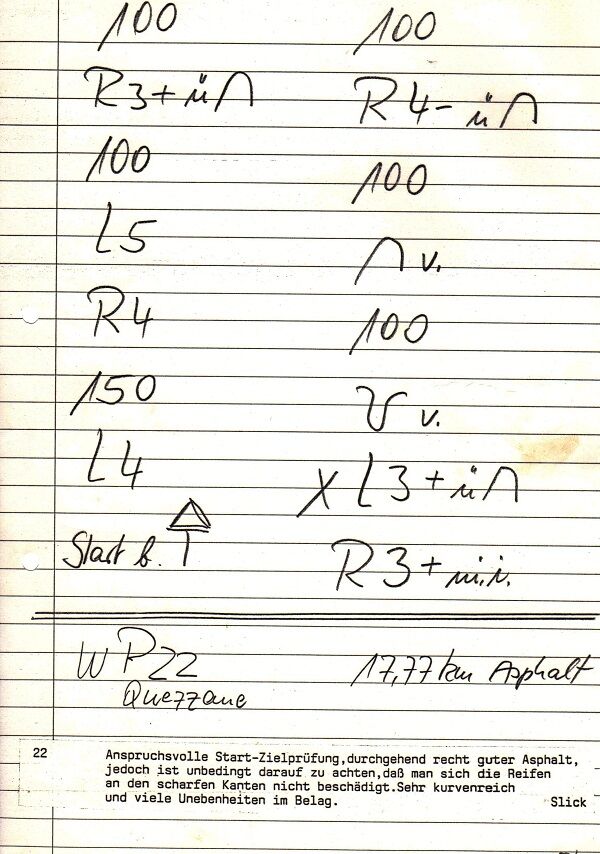 100
R3+ü∩
100
L5
R4
150
L4
Start b.
100
R4- ü∩
100
∩ v.
100
v.
X L3+ü∩
R3+
WP22
Quezzane
17,77 km Asphalt
22
Anspruchsvolle Start-Zielprüfung,durchgehend recht guter Asphalt,
jedoch ist unbedingt darauf zu achten,daß man sich die Reifen
an den scharfen Kanten nicht beschädigt.Sehr kurvenreich
und viele Unebenheiten im Belag. Slick